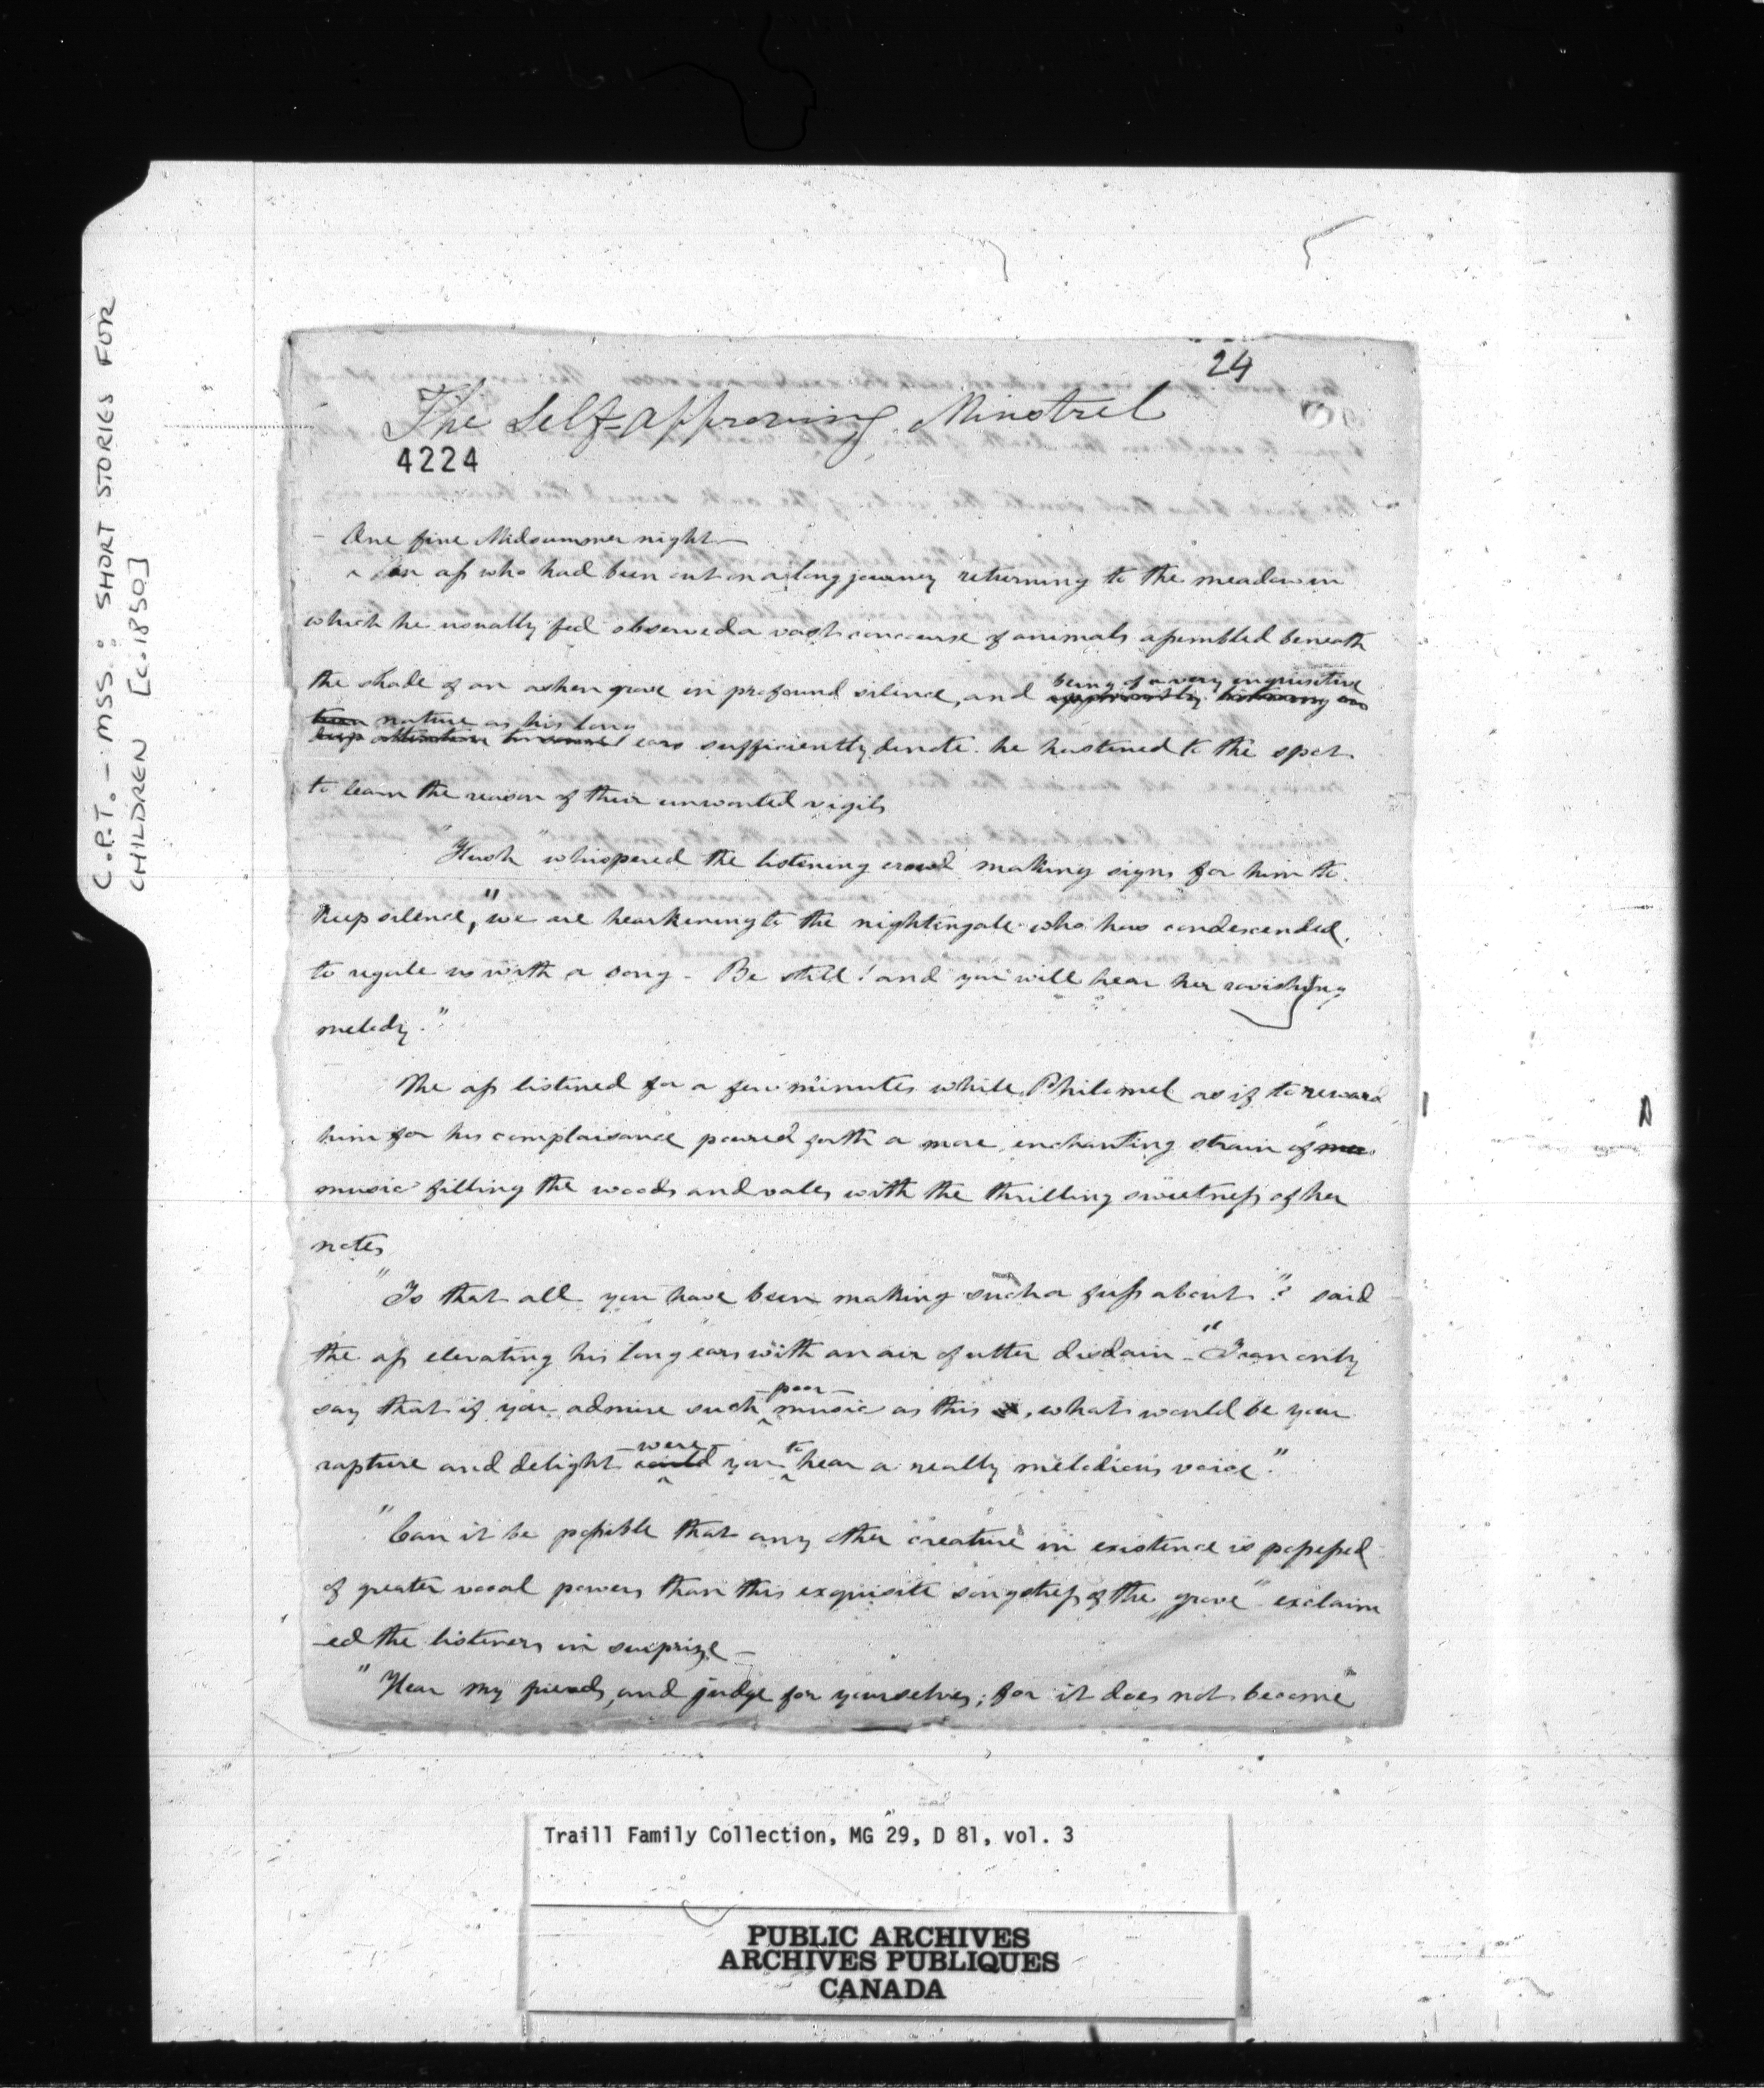 C.P.T. – MSS. : SHORT STORIES FOR
CHILDREN [c.1850]
24
The Self-approving Minstrel
4224
– One fine Midsummer night –
an aſs who had been out on a long journey returning to the meadow in
which he usually fed observed a vast concourse of animals aſsembled beneath
being of a very inquisitive
the shade of an ashen grove in profound silence, and
nature as his long
ears sufficiently denote. he hastened to the spot
to learn the reason of their unwonted vigils
"Hush" whispered the listening crowd making signs for him to
keep silence, "we are hearkening to the nightingale who has condescended
to regale us with a song – Be still! and you will hear her ravishing
melody."
The aſs listened for a few minutes while Philomel as if to reward
him for his complaisance poured forth a more enchanting strain of
music filling the woods and vales with the thrilling sweetneſs of her
notes
"Is that all you have been making such a fuſs about"? said
the aſs elevating his long ears with an air of utter disdain – "I can only
poor
say that if you admire such music as this, what would be your
were to
rapture and delight could you hear a really melodious voice."
"Can it be poſsible that any other creature in existence is poſseſsed
of greater vocal powers than this exquisite songstreſs of the grove" exclaim
–ed the listeners in surprize –
"Hear my friends, and judge for yourselves; for it does not become
Traill Family Collection, MG 29, D 81, vol. 3
PUBLIC ARCHIVES
ARCHIVES PUBLIQUES
CANADA